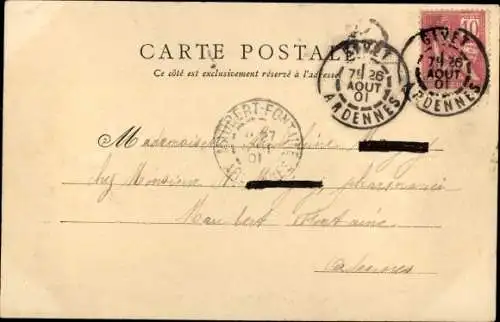 CARTE POSTALE
Ce côté est exclusivement réservé à l'adresse
GIVET
7E 26
AOUT
01
ARDENNES
GIVET
7E 26
AOUT
01
ARDENNES
10
MAUBERT-FONTAINE
27
01
Mademoiselle
chez Monsieur pharmacien
Maubert Fontaine
Ardennes